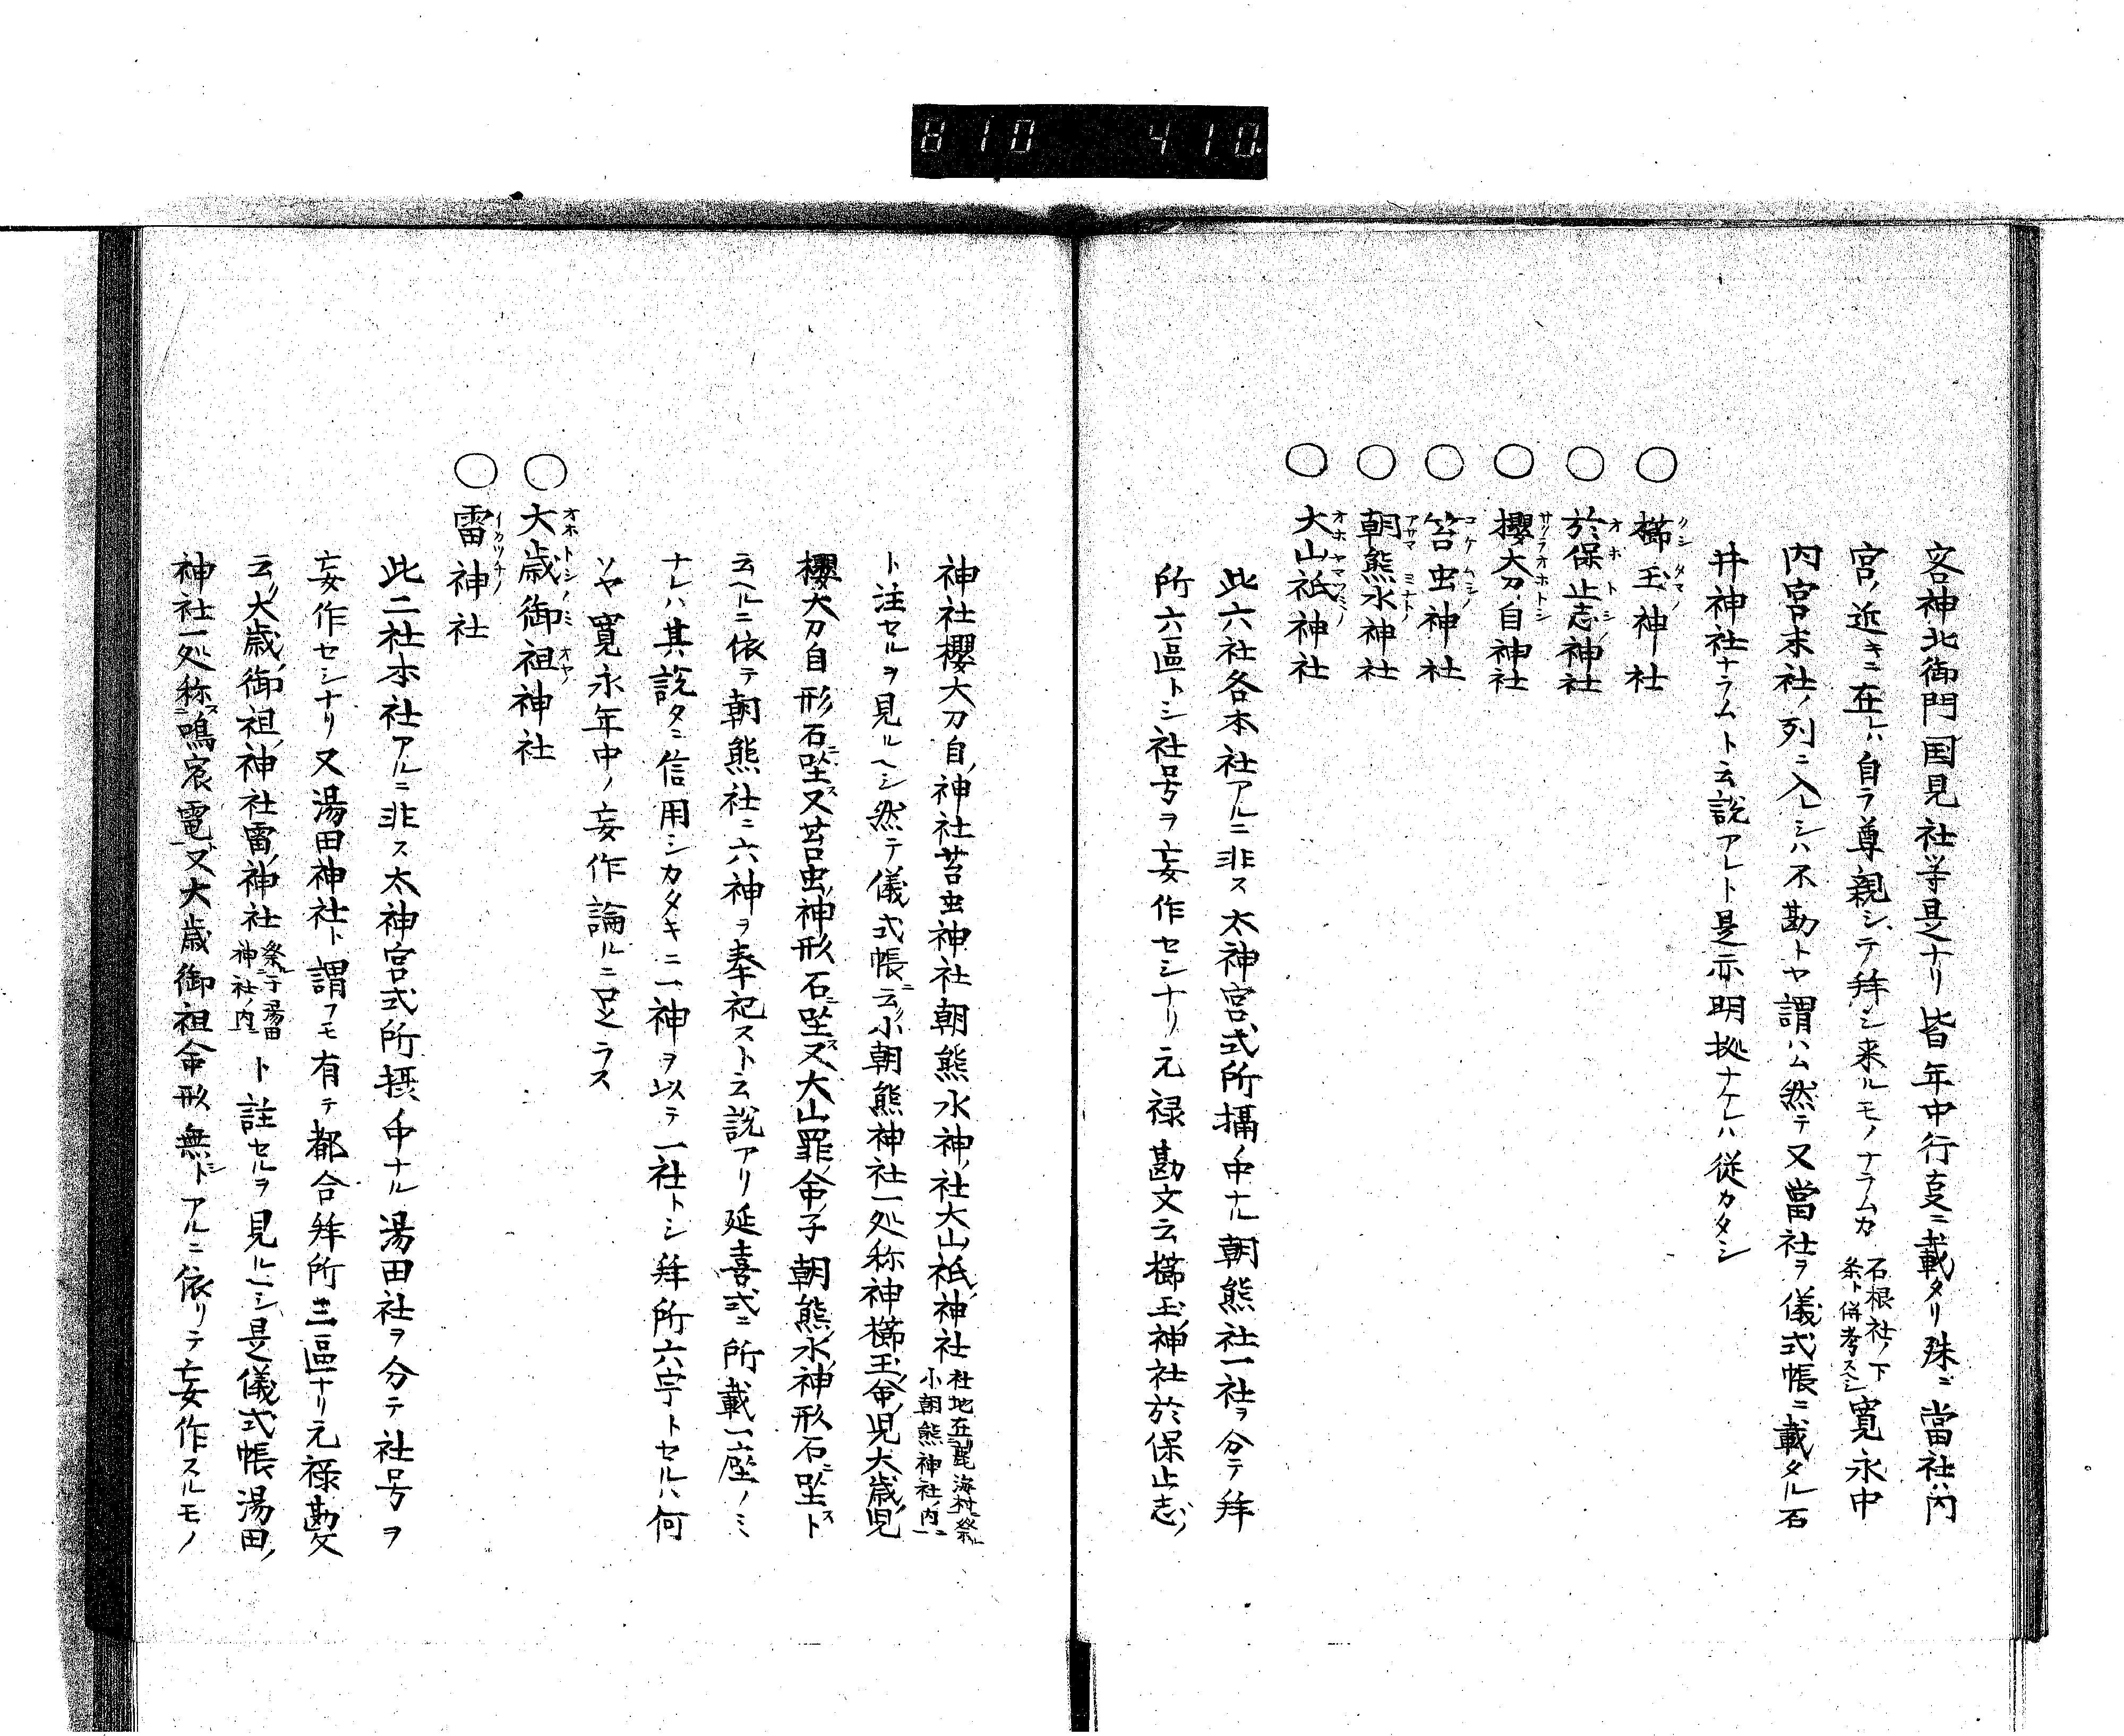 810 410
客神北御門国見社等是ナリ皆年中行事ニ載タリ殊ニ當社ハ内
宮ノ近キニ在レハ自ラ尊親シテ拜シ来ルモノナラムカ石根社ノ下条ト併考スヘシ寛永中
内宮末社ノ列ニ入レシハ不勘トヤ謂ハム然テ又當社ヲ儀式帳ニ載タル石
井神社ナラムト云説アレト是亦明拠ナケレハ従カタシ
○櫛玉神社
クシタマノ
○於保止志神社
オホトシノ
○櫻大刀自神社
サクラオホトシ
○苔虫神社
コケムシノ
○朝熊水神社
アサマミナトノ
○大山祇神社
オホヤマツミノ
此六社各本社アルニ非ス太神宮式所攝ノ中ナル朝熊社一社ヲ分テ拜
所六區トシ社号ヲ妄作セシナリ元禄勘文云櫛玉ノ神社於保止志ノ
神社櫻大刀自ノ神社苔虫神社朝熊水神ノ社大山祇ノ神社社地在鹿海村祭ル小朝熊神社ノ内ニ
ト注セルヲ見ルヘシ然テ儀式帳ニ云ク小朝熊神社一処称神櫛玉命ノ児大歳ノ児
櫻大刀自形石ニ坐ス又苔虫ノ神形石ニ坐ス又大山罪命ノ子朝熊ノ水ノ神形石ニ坐スト
云ヘルニ依テ朝熊社ニ六神ヲ奉祀スト云説アリ延喜式ニ所載一座ノミ
ナレハ其説タニ信用シカタキニ一神ヲ以テ一社トシ拜所六宇トセルハ何
ソヤ寛永年中ノ妄作論ルニ足ラス
○大歳御祖神社
オホトシノミオヤノ
○雷神社
イカツチノ
此二社本社アルニ非ス太神宮式所摂ノ中ナル湯田社ヲ分テ社号ヲ
妄作セシナリ又湯田神社ト謂フモ有テ都合拜所三區ナリ元禄勘文
云ク大歳ノ御祖ノ神社雷ノ神ノ社祭ル于湯田神社ノ内ニト註セルヲ見ルヘシ是儀式帳湯田ノ
神社一処称ス鳴震電ト又大歳御祖命形無シトアルニ依リテ妄作スルモノ